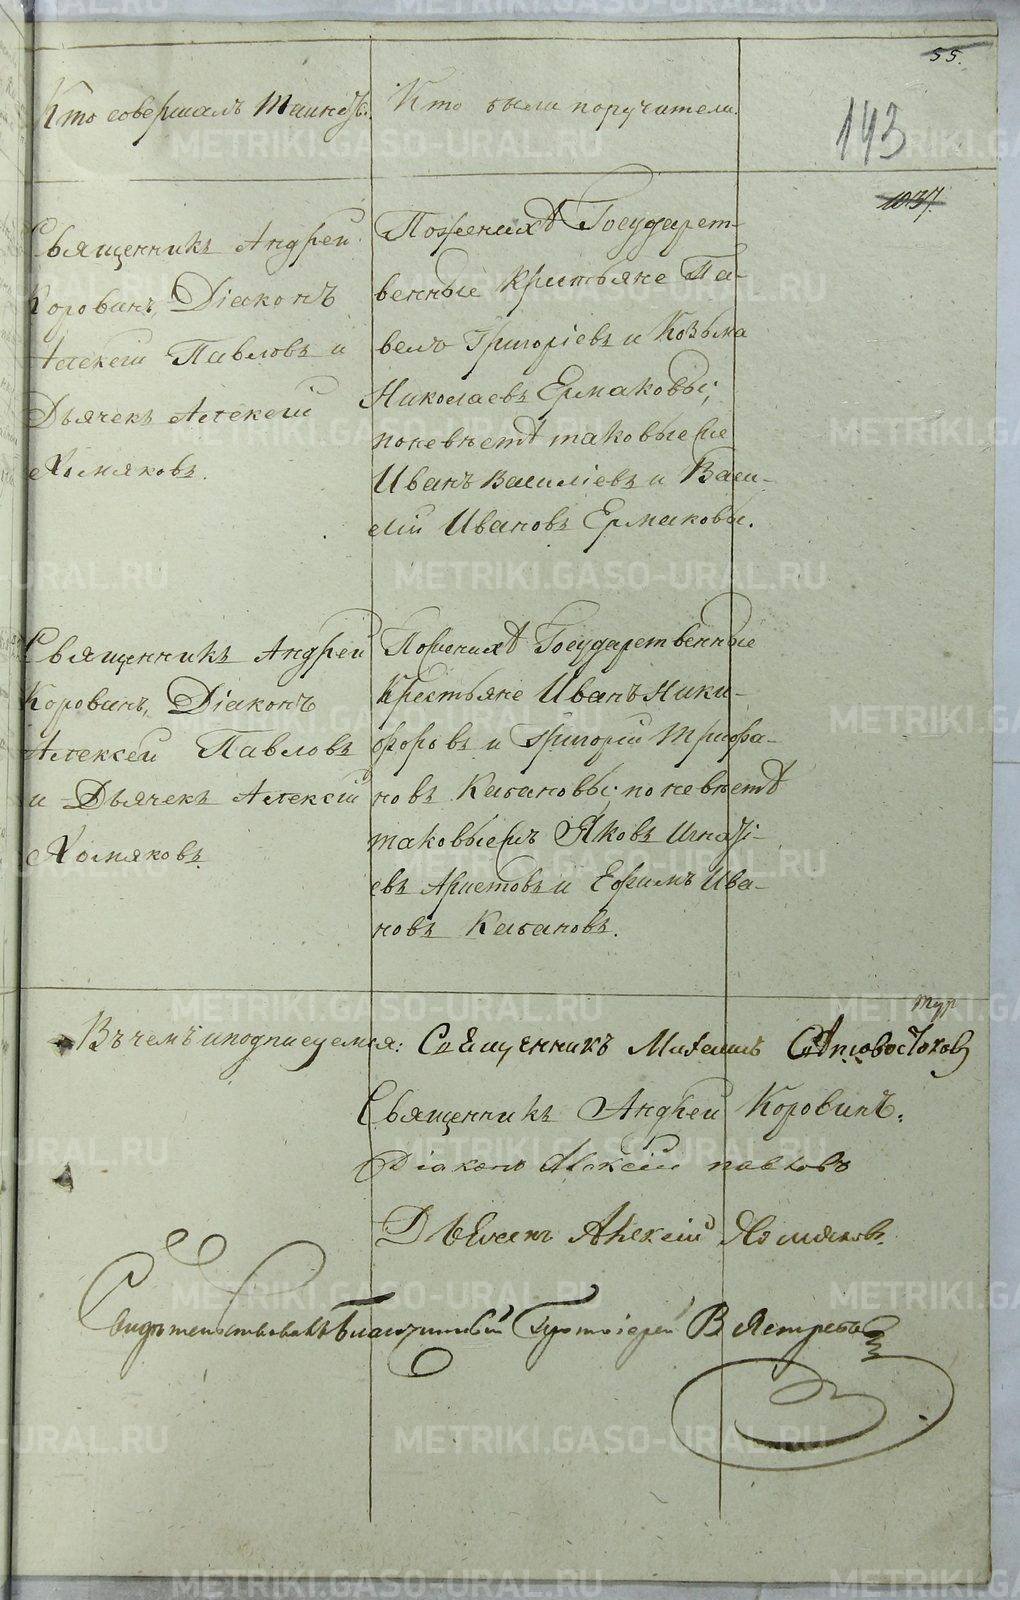 55.
Кто совершалъ Таинство.
Кто были поручители.
143
1037.
Священникъ Андрей
Коровинъ, Діаконъ
Алексей Павловъ и
Дьячекъ Алексей
Холмяковъ.
По женихѣ Государст-
венные Крестьяне Па-
велъ Григоріевъ и Козьма
Николаевъ Ермаковы;
по невѣстѣ таковые же
Иванъ Васильевъ и Васи-
лій Ивановъ Ермаковы.
Священникъ Андрей
Коровинъ, Діаконъ
Алексей Павловъ
и Дьячекъ Алексей
Холмяковъ.
По женихѣ Государственные
Крестьяне Иванъ Ники-
форовъ и Григорій Трифа-
новъ Касановы; по невѣстѣ
таковые Яковъ Игнаті-
евъ Аристовъ и Ефимъ Ива-
новъ Касановъ.
Въ чемъ и подписуемся:
Священникъ Михаилъ
Священникъ Андрей Коровинъ.
Діаконъ Алексій Павловъ
Дьячекъ Алексій Холмяковъ.
Свидѣтельствовалъ Благочинный Протоіерей В Ястребовъ
METRIKI.GASO-URAL.RU